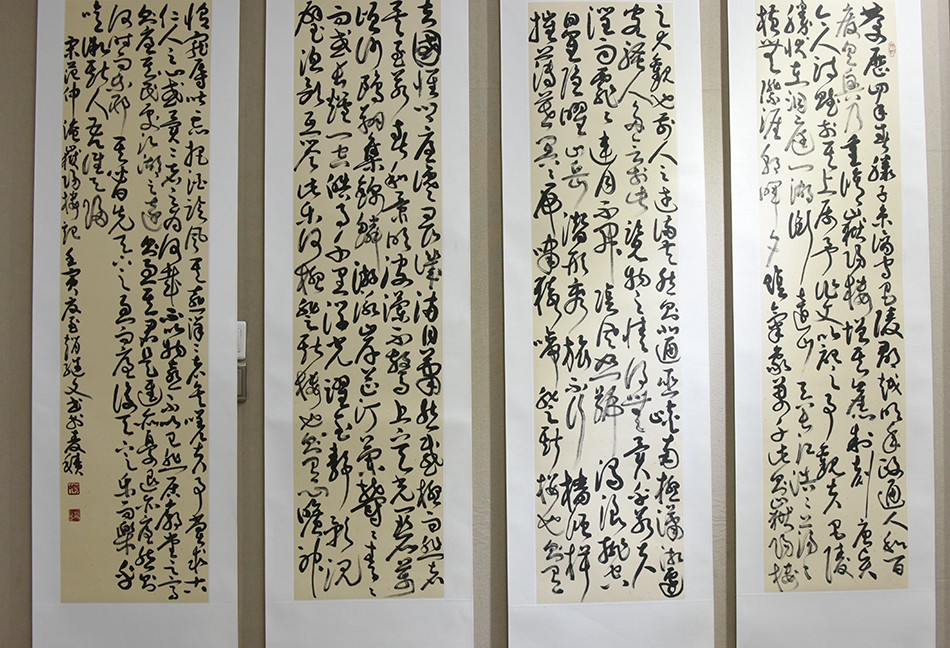 慶曆四年春滕子京謫守巴陵郡越明年政通人和百
廢具興乃重修嶽陽樓增其舊制刻唐賢
今人詩賦於其上屬予作文以記之予觀夫巴陵
勝狀在洞庭一湖銜遠山吞長江浩浩湯湯
橫無際涯朝暉夕陰氣象萬千此則嶽陽樓
之大觀也前人之述備矣然則北通巫峽南極瀟湘遷
客騷人多會於此覽物之情得無異乎若夫
霪雨霏霏連月不開陰風怒號濁浪排空
日星隱曜山岳潛形商旅不行檣傾楫
摧薄暮冥冥虎嘯猿啼登斯樓也則有
去國懷鄉憂讒畏譏滿目蕭然感極而悲者
矣至若春和景明波瀾不驚上下天光一碧萬
頃沙鷗翔集錦鱗游泳岸芷汀蘭鬱鬱青青
而或長煙一空皓月千里浮光躍金靜影沉
璧漁歌互答此樂何極登斯樓也則有心曠神
怡寵辱皆忘把酒臨風其喜洋洋者矣嗟夫予嘗求古
仁人之心或異二者之為何哉不以物喜不以己悲居廟堂之高
則憂其民處江湖之遠則憂其君是進亦憂退亦憂然則
何時而樂耶其必曰先天下之憂而憂後天下之樂而樂乎
噫微斯人吾誰與歸
宋范仲淹嶽陽樓記壬寅夏至